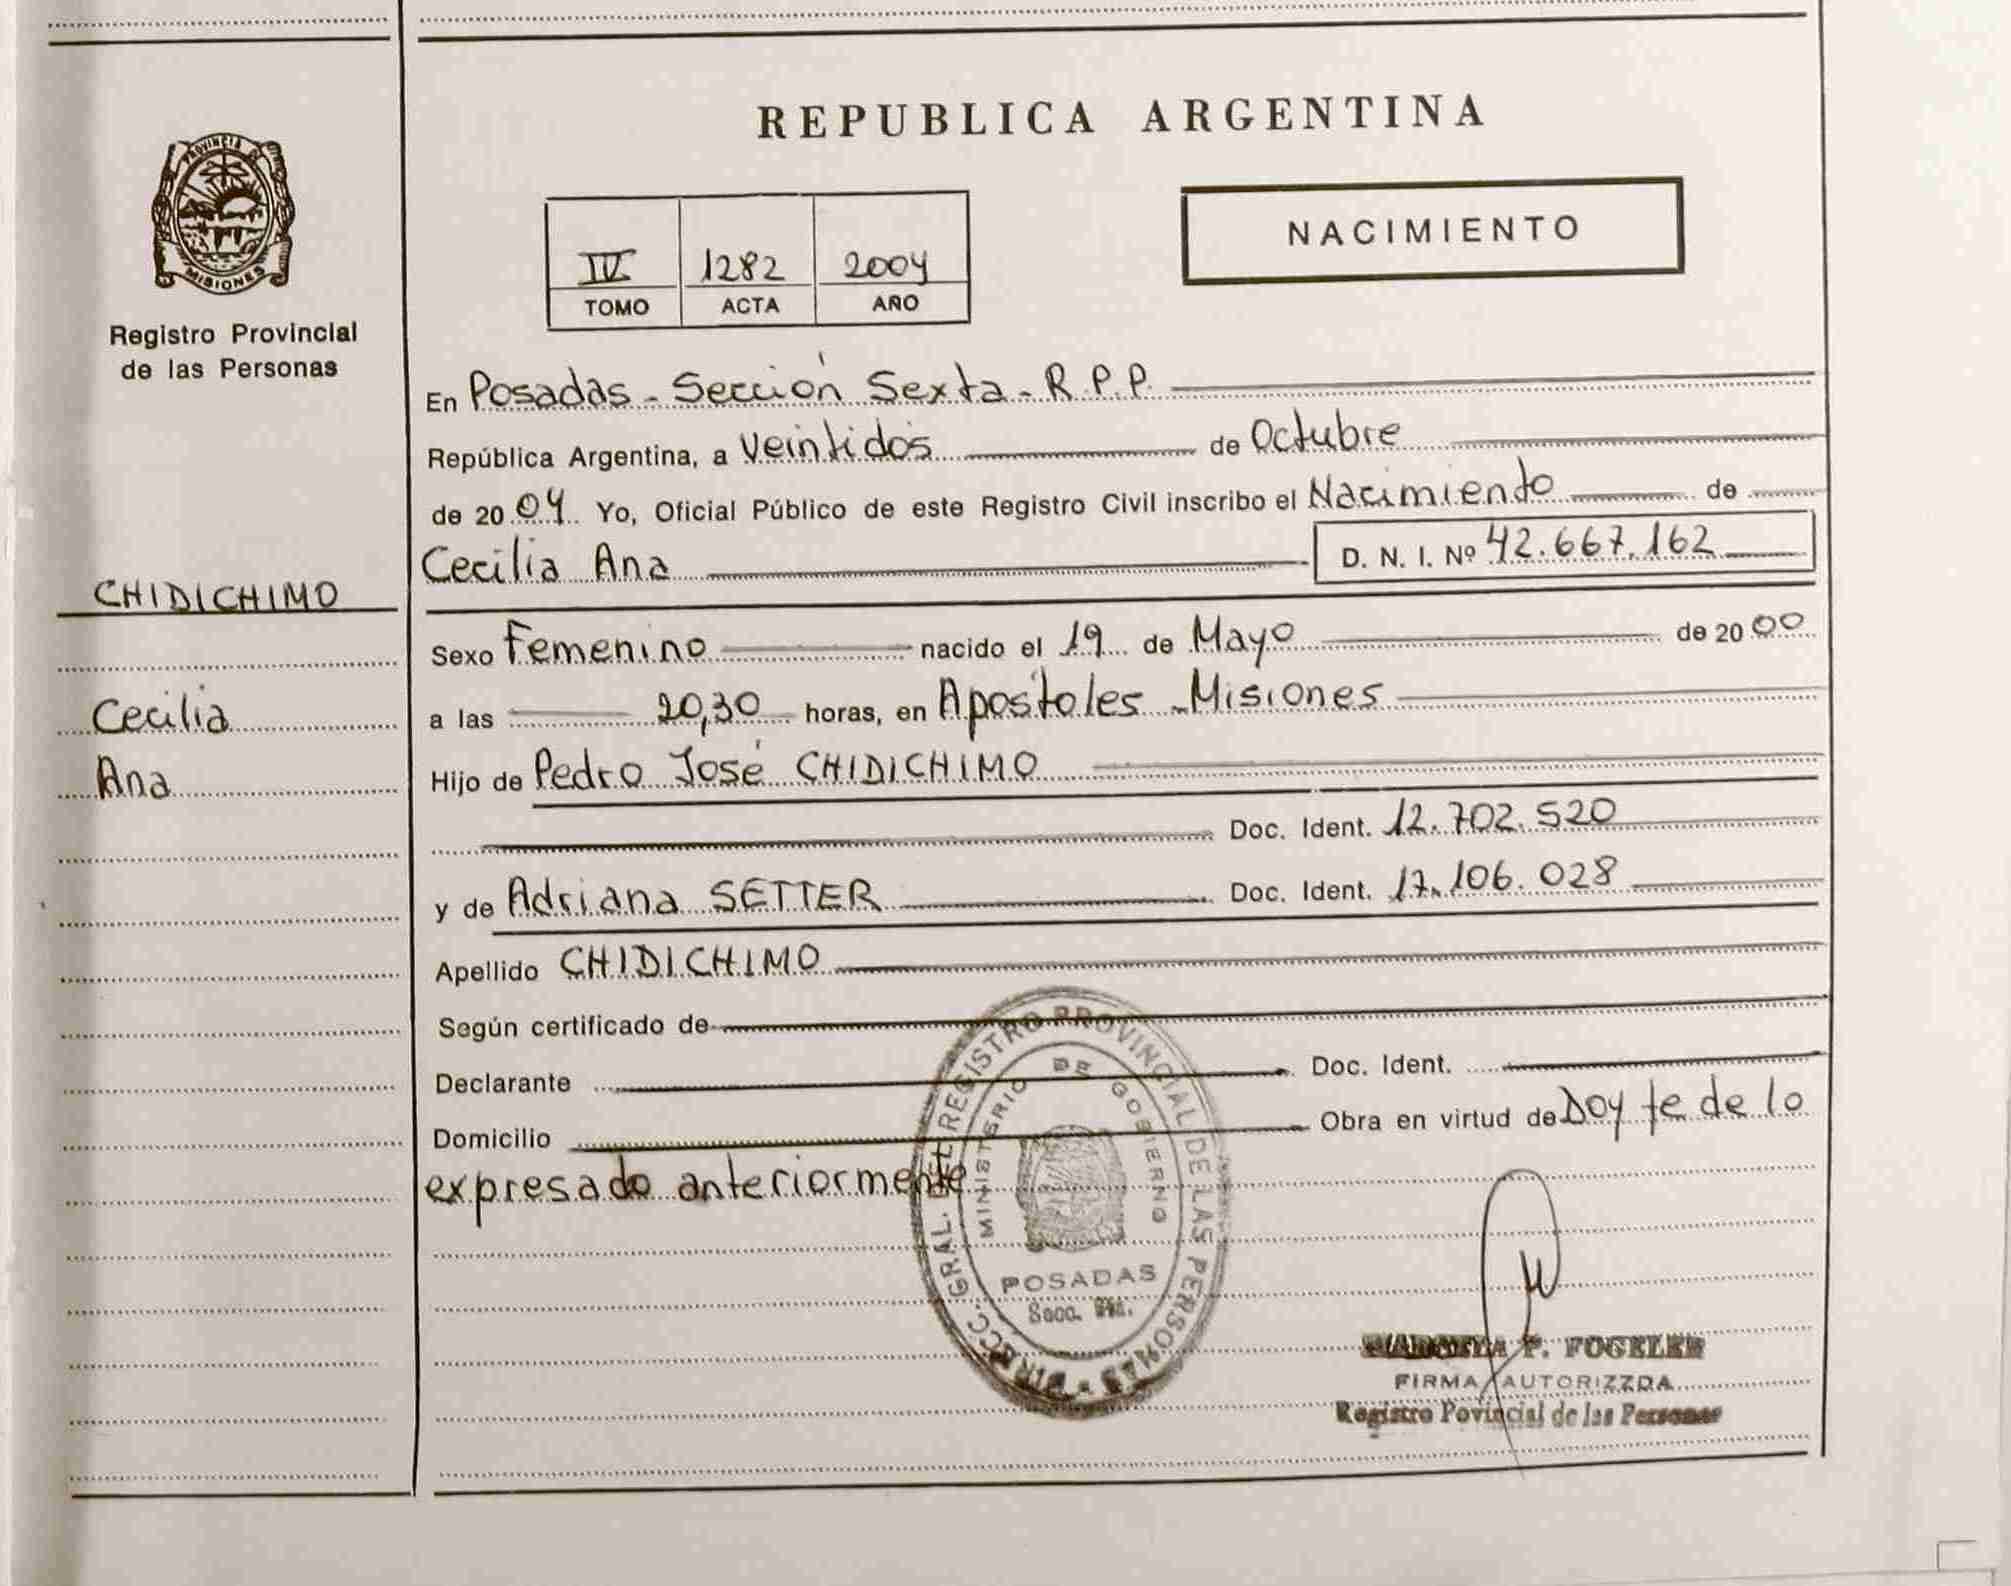 REPUBLICA ARGENTINA
PROVINCIA DE
MISIONES
Registro Provincial
de las Personas
NACIMIENTO
IV 1282 2004
TOMO ACTA AÑO
En Posadas - Sección Sexta - R.P.P.
República Argentina, a Veintidós de Octubre
de 2004 Yo, Oficial Público de este Registro Civil inscribo el Nacimiento de
Cecilia Ana D. N. I. Nº 42.667.162
CHIDICHIMO
Cecilia
Ana
Sexo Femenino nacido el 19 de Mayo de 2000
a las 20,30 horas, en Apóstoles - Misiones
Hijo de Pedro José CHIDICHIMO
Doc. Ident. 12.702.520
y de Adriana SETTER Doc. Ident. 17.106.028
Apellido CHIDICHIMO
Según certificado de
Declarante Doc. Ident.
Domicilio Obra en virtud de Doy fe de lo
expresado anteriormente
DIRECC. GRAL. DEL REGISTRO PROVINCIAL DE LAS PERSONAS
MINISTERIO DE GOBIERNO
POSADAS
Secc.
P. FOGELER
FIRMA AUTORIZZDA
Registro Povincial de las Personas